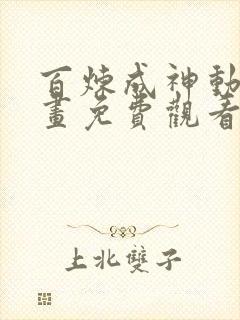 百煉成神動
畫免費觀看
上北雙子